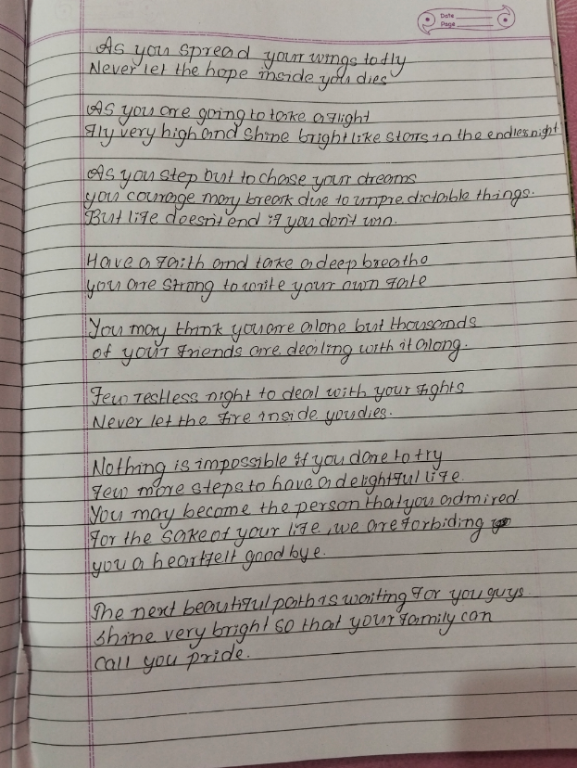 Date
Page
As you spread your wings to fly
Never let the hope inside you dies
As you are going to take a flight
fly very high and shine bright like stars in the endless night
As you step out to chase your dreams
you courage may break due to unpredictable things.
But life doesn't end if you don't win.
Have a faith and take a deep breathe
you are strong to write your own fate
You may think you are alone but thousands
of your friends are dealing with it along.
Few restless night to deal with your fights
Never let the fire inside you dies.
Nothing is impossible if you dare to try
few more steps to have a delightful life
You may become the person that you admired
for the sake of your life, we are forbiding
you a heartfelt good bye.
The next beautiful path is waiting for you guys
shine very bright so that your family can
call you pride.